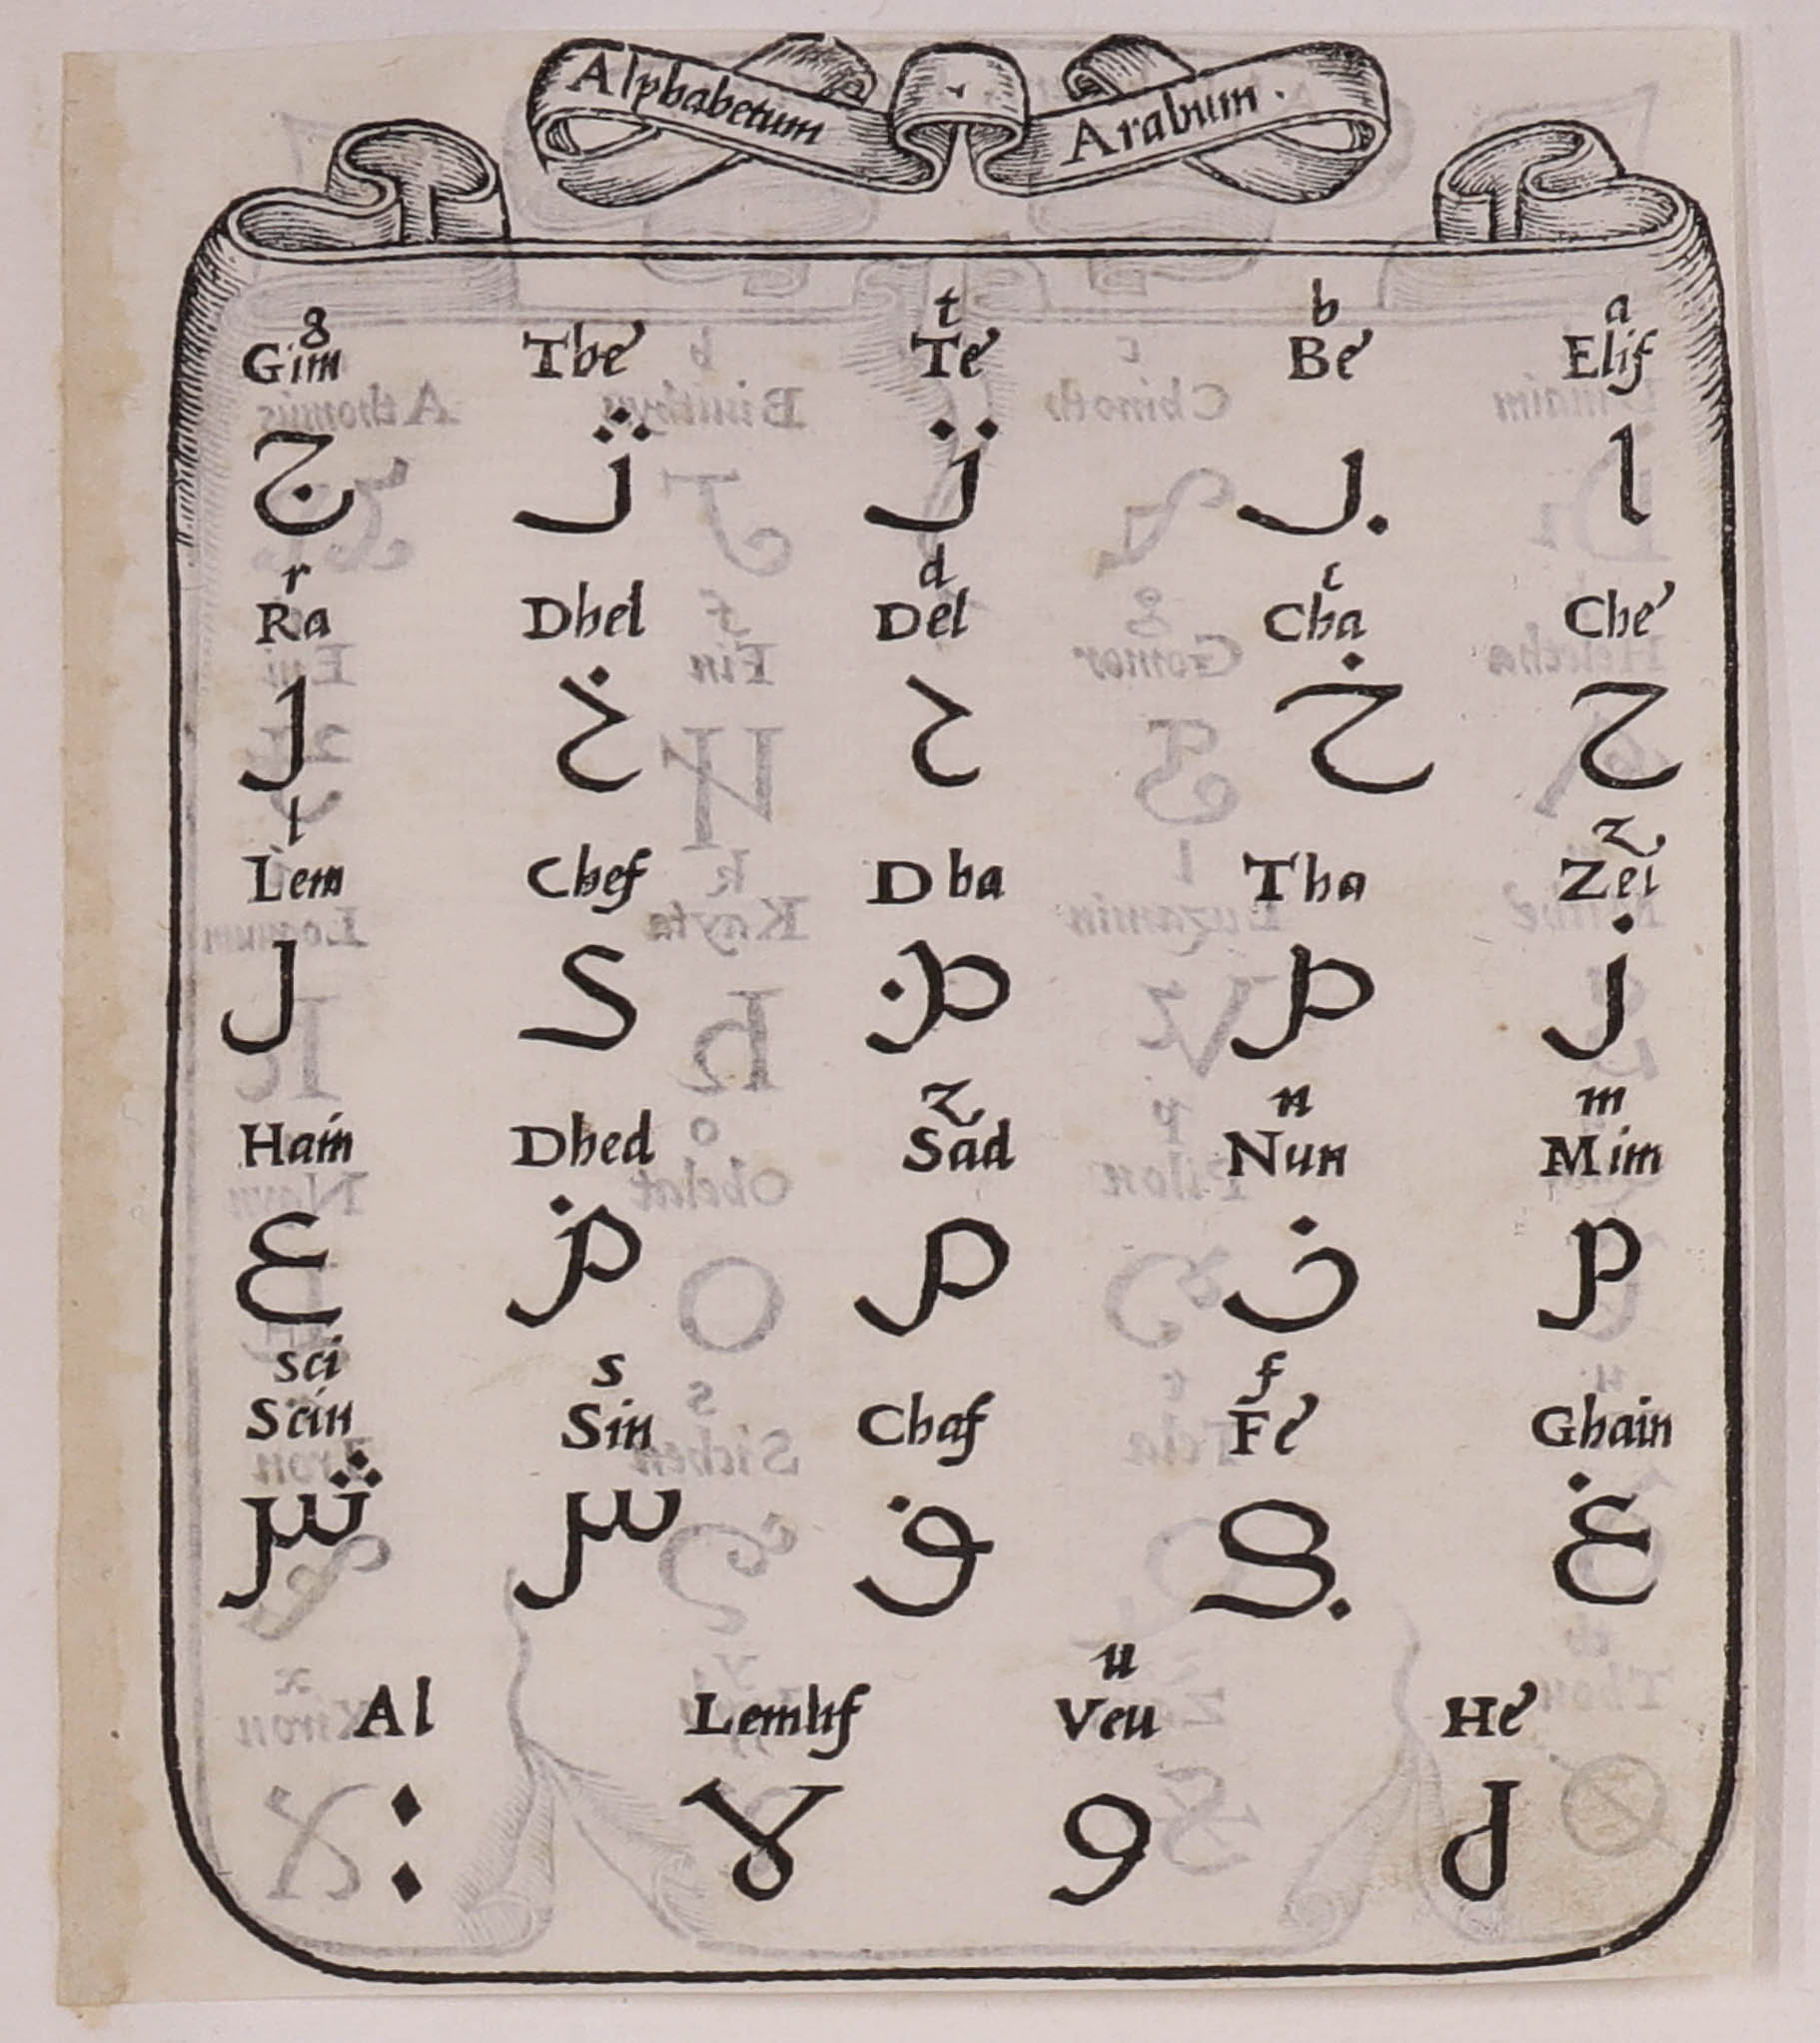 Alphabetum Arabum .
g t b a
Gim The Te Be Elif
ج ث ت ب ا
r d c
Ra Dhel Del Cha Che
ر ذ د خ ح
l z
Lem Chef Dha Tha Zei
ل ك ظ ط ز
z n m
Hain Dhed Sad Nun Mim
ع ض ص ن م
sci s f
Scin Sin Chaf Fe Ghain
ش س ڧ ڢ غ
u
Al Lemlif Veu He
: لا و ه